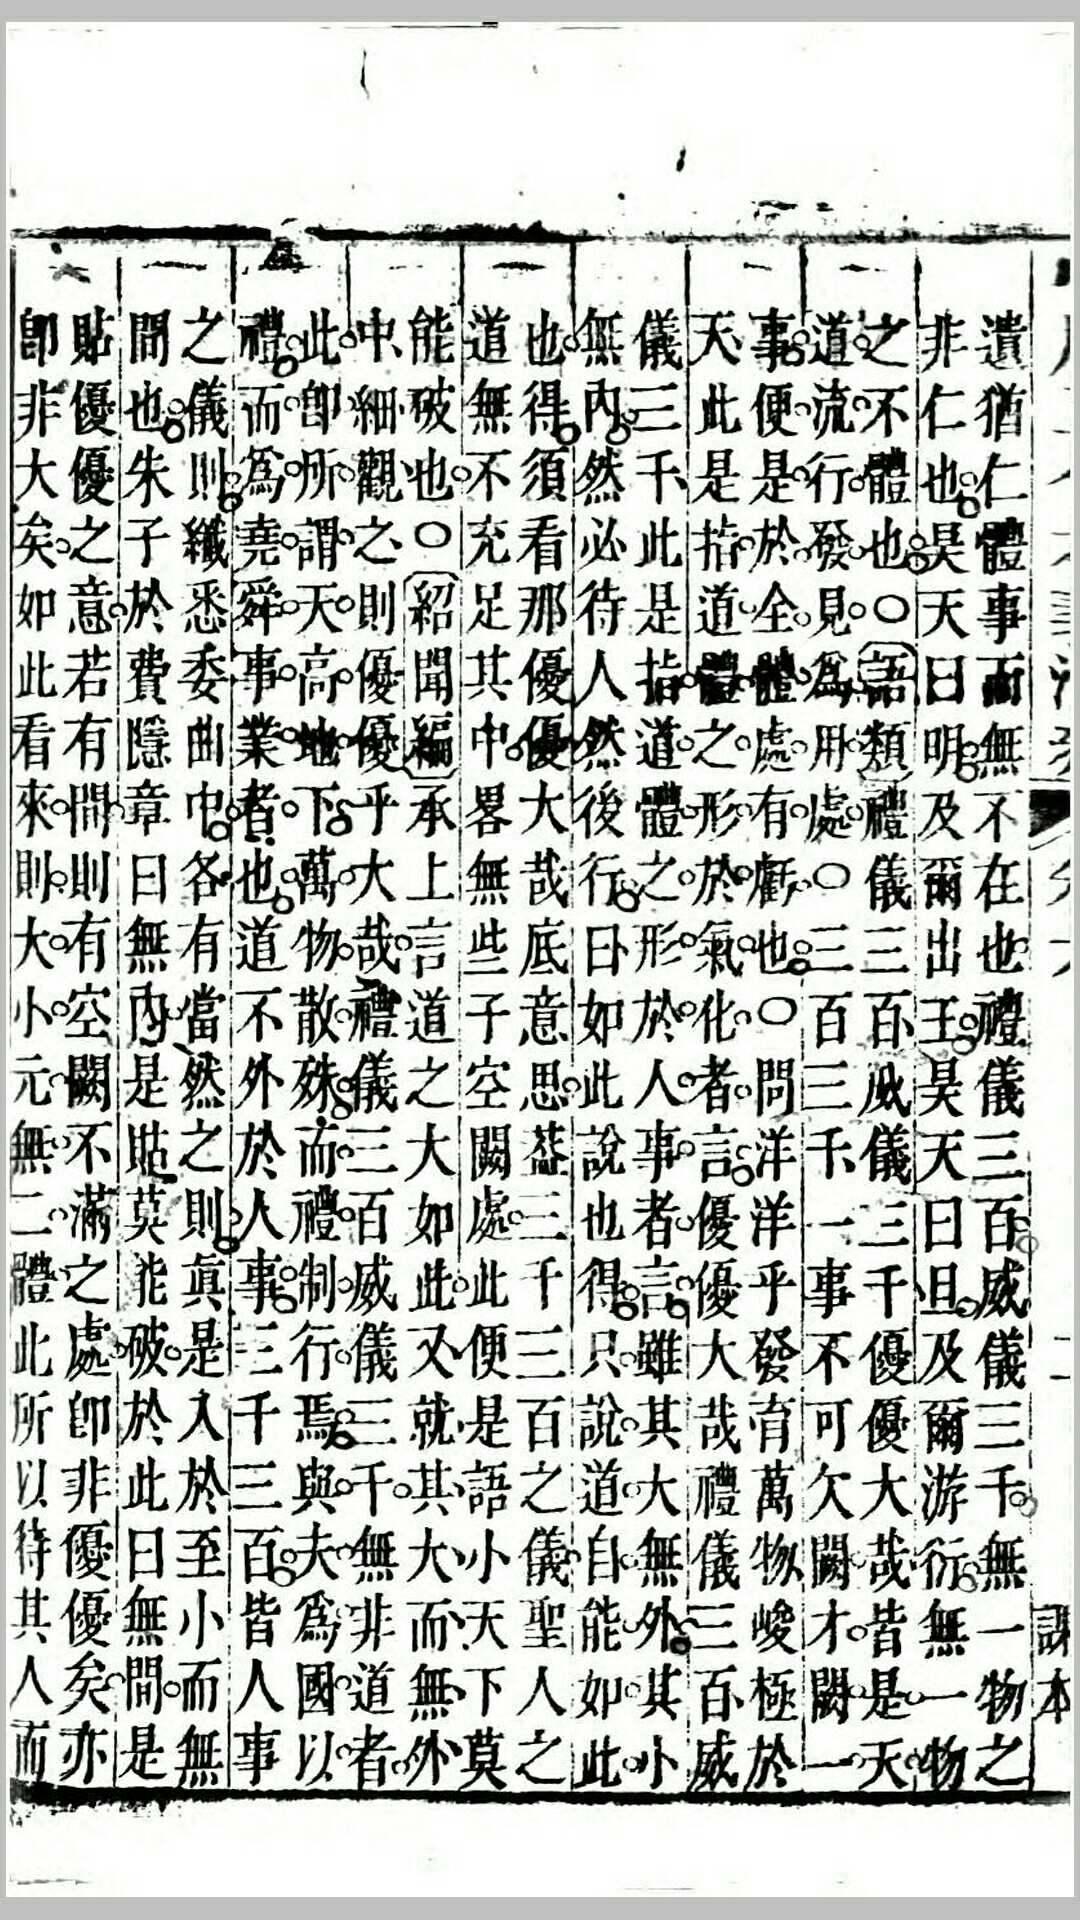 遺猶仁體事而無不在也禮儀三百威儀三千無一物之
非仁也昊天曰明及爾出王昊天曰旦及爾游衍無一物
之不體也○語類禮儀三百威儀三千優優大哉皆是天
道流行發見爲用處○三百三千一事不可欠闕才闕一
事便是於全體處有虧也○問洋洋乎發育萬物峻極於
天此是指道體之形於氣化者言優優大哉禮儀三百威
儀三千此是指道體之形於人事者言雖其大無外其小
無內然必待人然後行曰如此說也得只說道自能如此
也得須看那優優大哉底意思葢三千三百之儀聖人之
道無不充足其中畧無些子空闕處此便是語小天下莫
能破也○紹聞編承上言道之大如此又就其大而無外
中細觀之則優優乎大哉禮儀三百威儀三千無非道者
此卽所謂天高地下萬物散殊而禮制行焉與夫爲國以
禮而爲堯舜事業者也道不外於人事三千三百皆人事
之儀則纖悉委曲中各有當然之則眞是入於至小而無
間也朱子於費隱章曰無內是貼莫能破於此曰無間是
貼優優之意若有間則有空闕不滿之處卽非優優矣亦
卽非大矣如此看來則大小元無二體此所以待其人而
課本